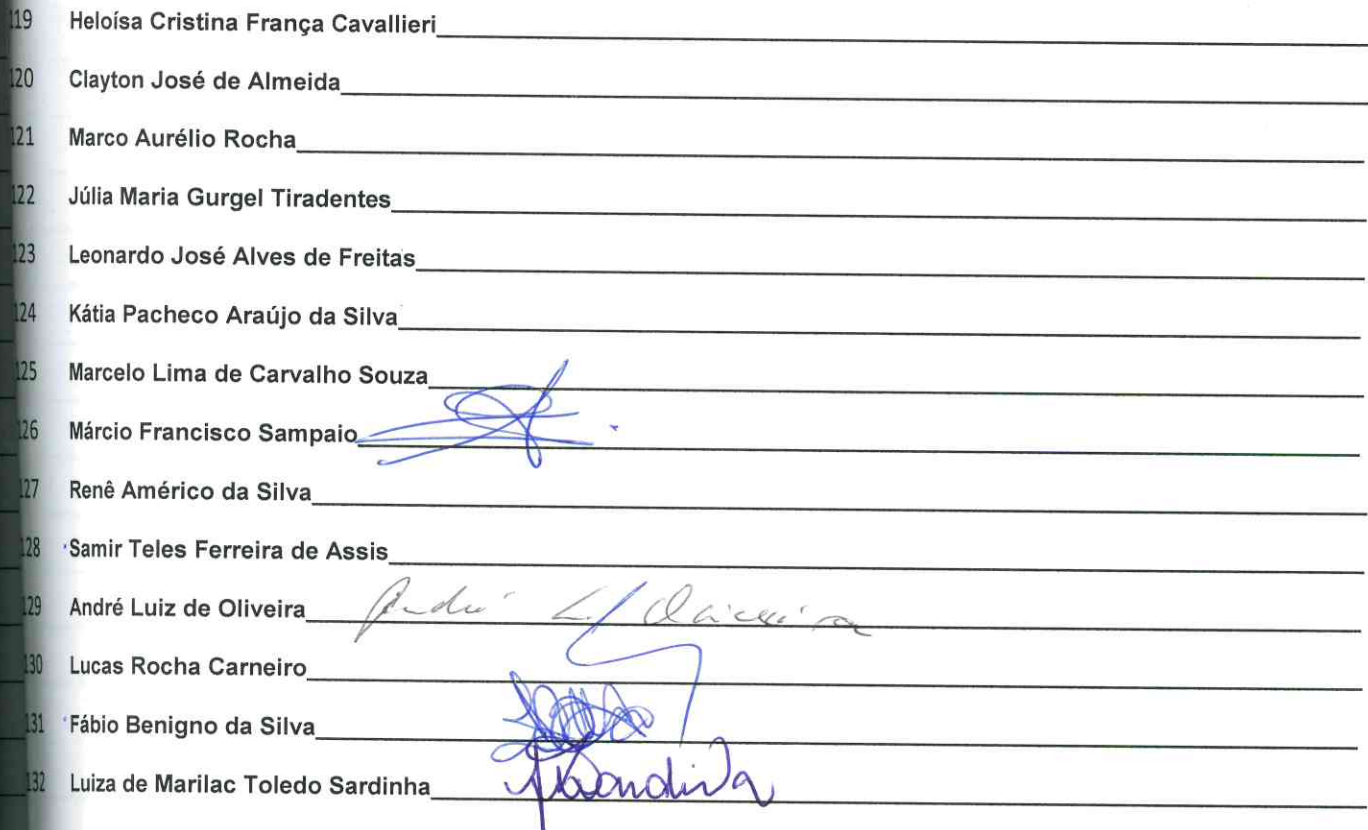 119 Heloísa Cristina França Cavallieri
120 Clayton José de Almeida
121 Marco Aurélio Rocha
122 Júlia Maria Gurgel Tiradentes
123 Leonardo José Alves de Freitas
124 Kátia Pacheco Araújo da Silva
125 Marcelo Lima de Carvalho Souza
126 Márcio Francisco Sampaio
127 Renê Américo da Silva
128 Samir Teles Ferreira de Assis
129 André Luiz de Oliveira André L. Oliveira
130 Lucas Rocha Carneiro
131 Fábio Benigno da Silva
132 Luiza de Marilac Toledo Sardinha